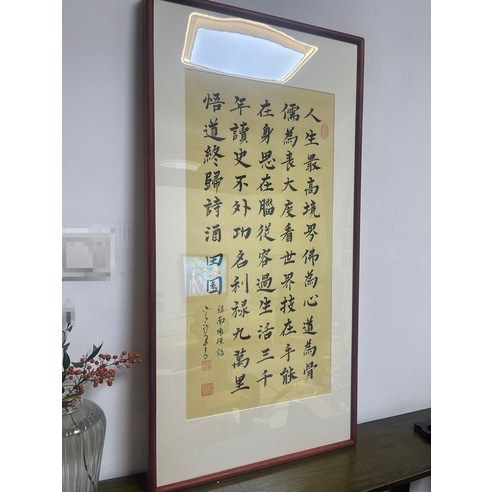 人生最高境界佛為心道為骨
儒為表大度看世界技在手能
在身思在腦從容過生活三千
年讀史不外功名利祿九萬里
悟道終歸詩酒田園
南懷瑾語